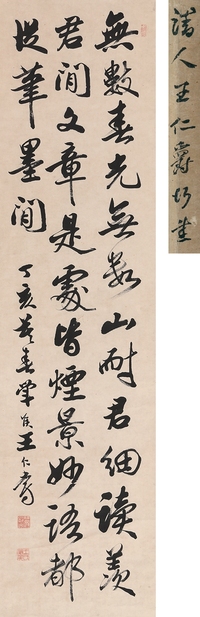 無數春光無數山耐君細讀羨
君閒文章是處皆煙景妙語都
從筆墨間
丁亥暮春學王仁爵
清人王仁爵行書